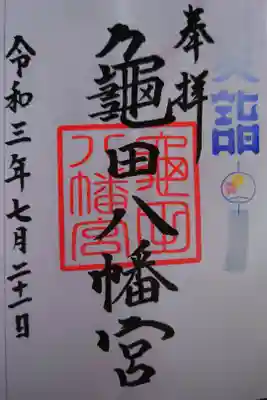 夏詣
奉拝
龜田八幡宮
龜田八幡宮
令和三年七月二十一日